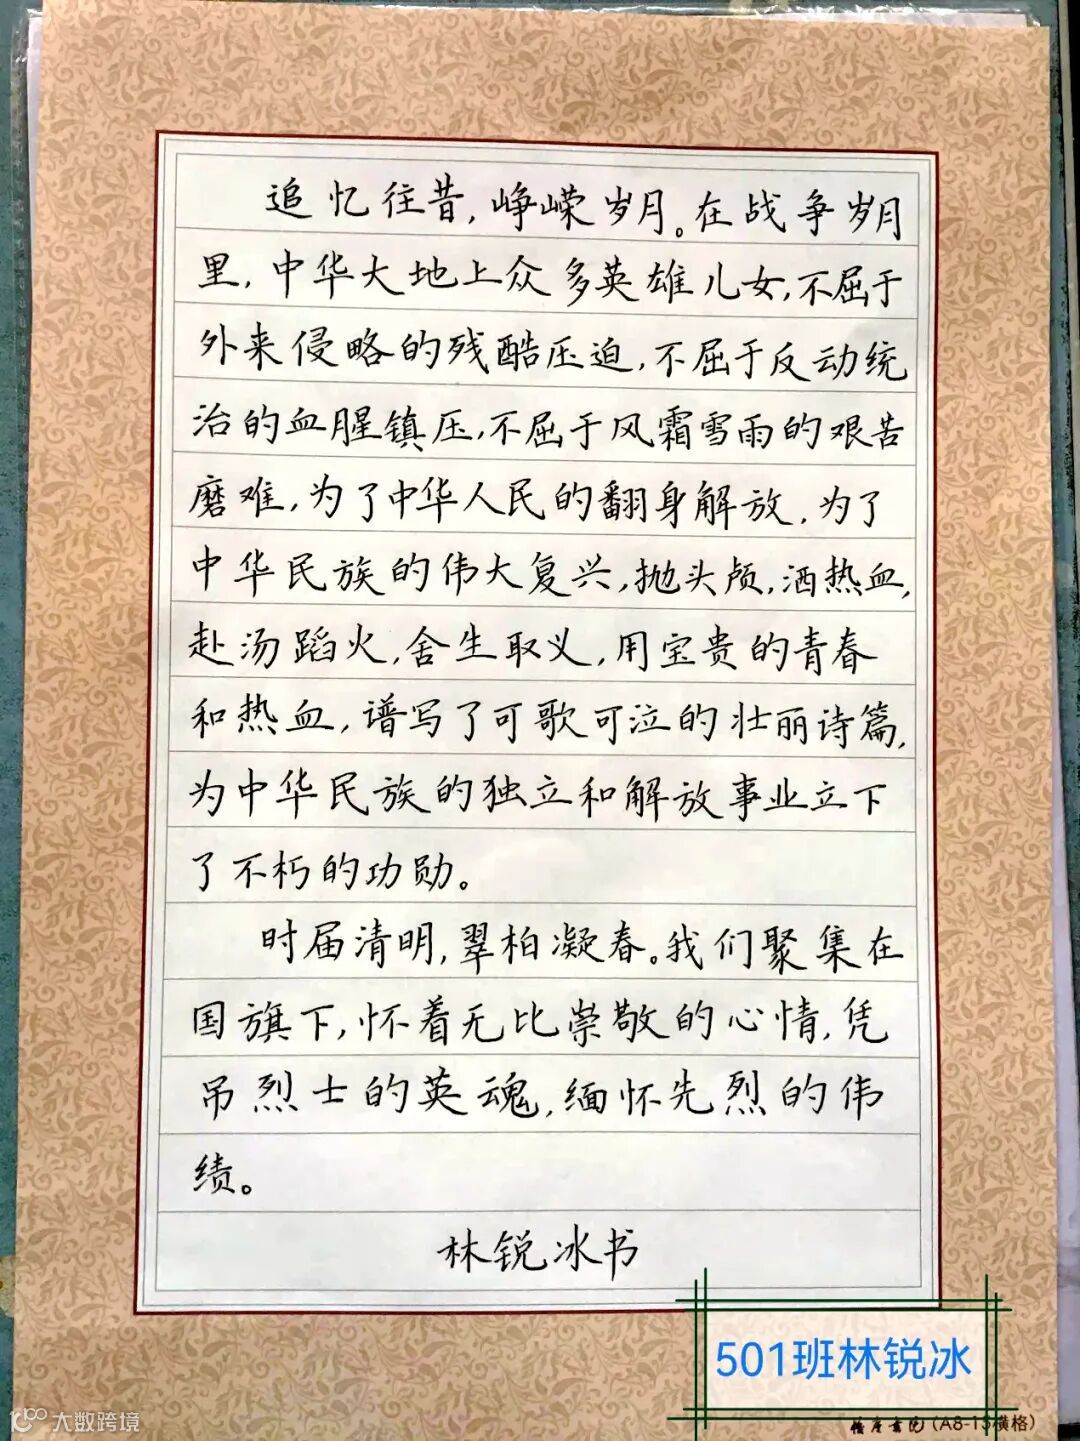 追忆往昔,峥嵘岁月。在战争岁月
里,中华大地上众多英雄儿女,不屈于
外来侵略的残酷压迫,不屈于反动统
治的血腥镇压,不屈于风霜雪雨的艰苦
磨难,为了中华人民的翻身解放,为了
中华民族的伟大复兴,抛头颅,洒热血,
赴汤蹈火,舍生取义,用宝贵的青春
和热血,谱写了可歌可泣的壮丽诗篇,
为中华民族的独立和解放事业立下
了不朽的功勋。
时届清明,翠柏凝春。我们聚集在
国旗下,怀着无比崇敬的心情,凭
吊烈士的英魂,缅怀先烈的伟
绩。
林锐冰书
501班林锐冰
(A8-15横格)
大数跨境